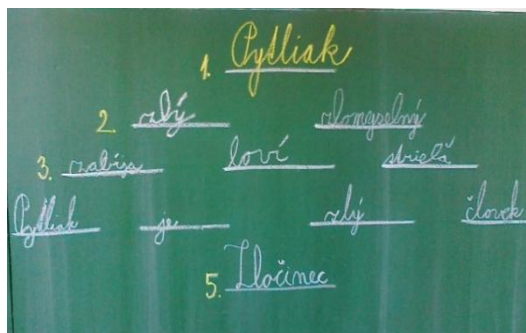 1. Pytliak
2. zlý zlomyselný
3. zabíja loví strieľa
Pytliak je zlý človek
5. Zločinec